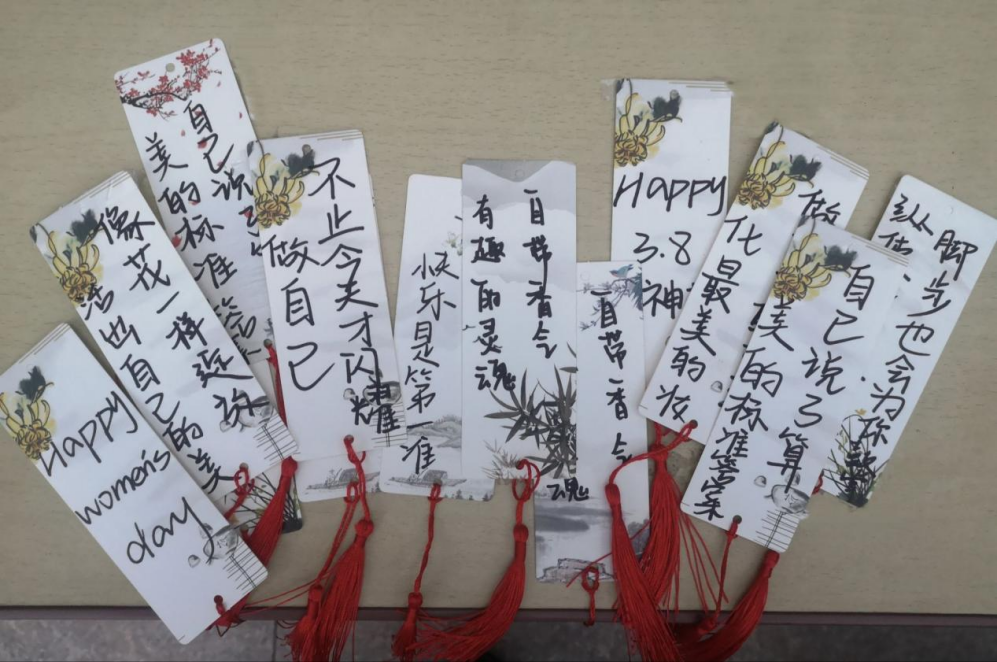 Happy
women's
day
像花一样绽放
活出自己的美
自己说了
美的标准
不止今天才闪耀
做自己
快乐是第一准
自带香气
有趣的灵魂
自带香气
魂
Happy
3.8
神
做
化最美的妆
自己说了算
美的标准
脚步也会为你
纵